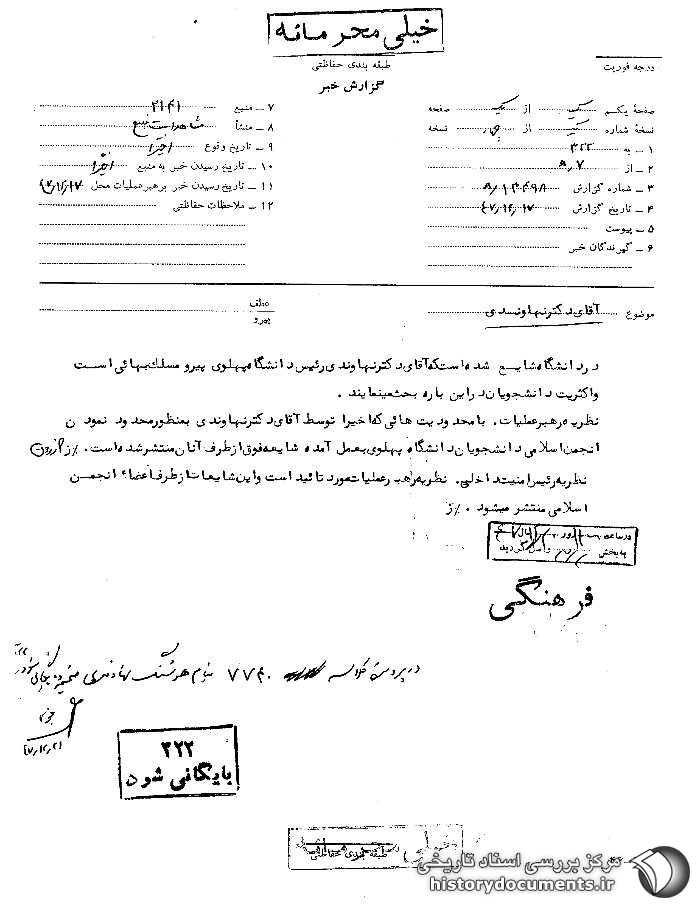 خیلی محرمانه
طبقه بندی حفاظتی
درجه فوریت
گزارش خبر
صفحهٔ یکم یک از یک صفحه
نسخهٔ شماره یک از نسخه
۱ ـ به ۳۲۲
۲ ـ از ۷ه‍
۳ ـ شماره گزارش
۴ ـ تاریخ گزارش ۴۷/۱۲/۱۷
۵ ـ پیوست
۶ ـ گیرندگان خبر
۷ ـ منبع ۲۱۴۱
۸ ـ منشأ مشاهدات منبع
۹ ـ تاریخ وقوع اخیرا
۱۰ ـ تاریخ رسیدن خبر به منبع اخیرا
۱۱ ـ تاریخ رسیدن خبر برهبر عملیات محل ۴۷/۱۲/۱۷
۱۲ ـ ملاحظات حفاظتی
موضوع آقای دکتر نهاوندی
عطف
پیرو
در دانشگاه شایع شده است که آقای دکتر نهاوندی رئیس دانشگاه پهلوی پیرو مسلک بهائی است
واکثریت دانشجویان در این باره بحث مینمایند .
نظریه رهبر عملیات. با محدودیت هائی که اخیرا توسط آقای دکتر نهاوندی بمنظور محدود نمودن
انجمن اسلامی دانشجویان دانشگاه پهلوی بعمل آمده شایعه فوق از طرف آنان منتشر شده است.
نظریه رئیس امنیت داخلی. نظریه رهبر عملیات مورد تائید است و این شایعات از طرف اعضاء انجمن
اسلامی منتشر میشود . /ز
در ساعت روز
به بخش واصل گردید
فرهنگی
در پرونده کلاسه ۷۷۴۰ بنام هوشنگ نهاوندی
۳۲۲
بایگانی شود
طبقه بندی حفاظتی
مرکز بررسی اسناد تاریخی
historydocuments.ir